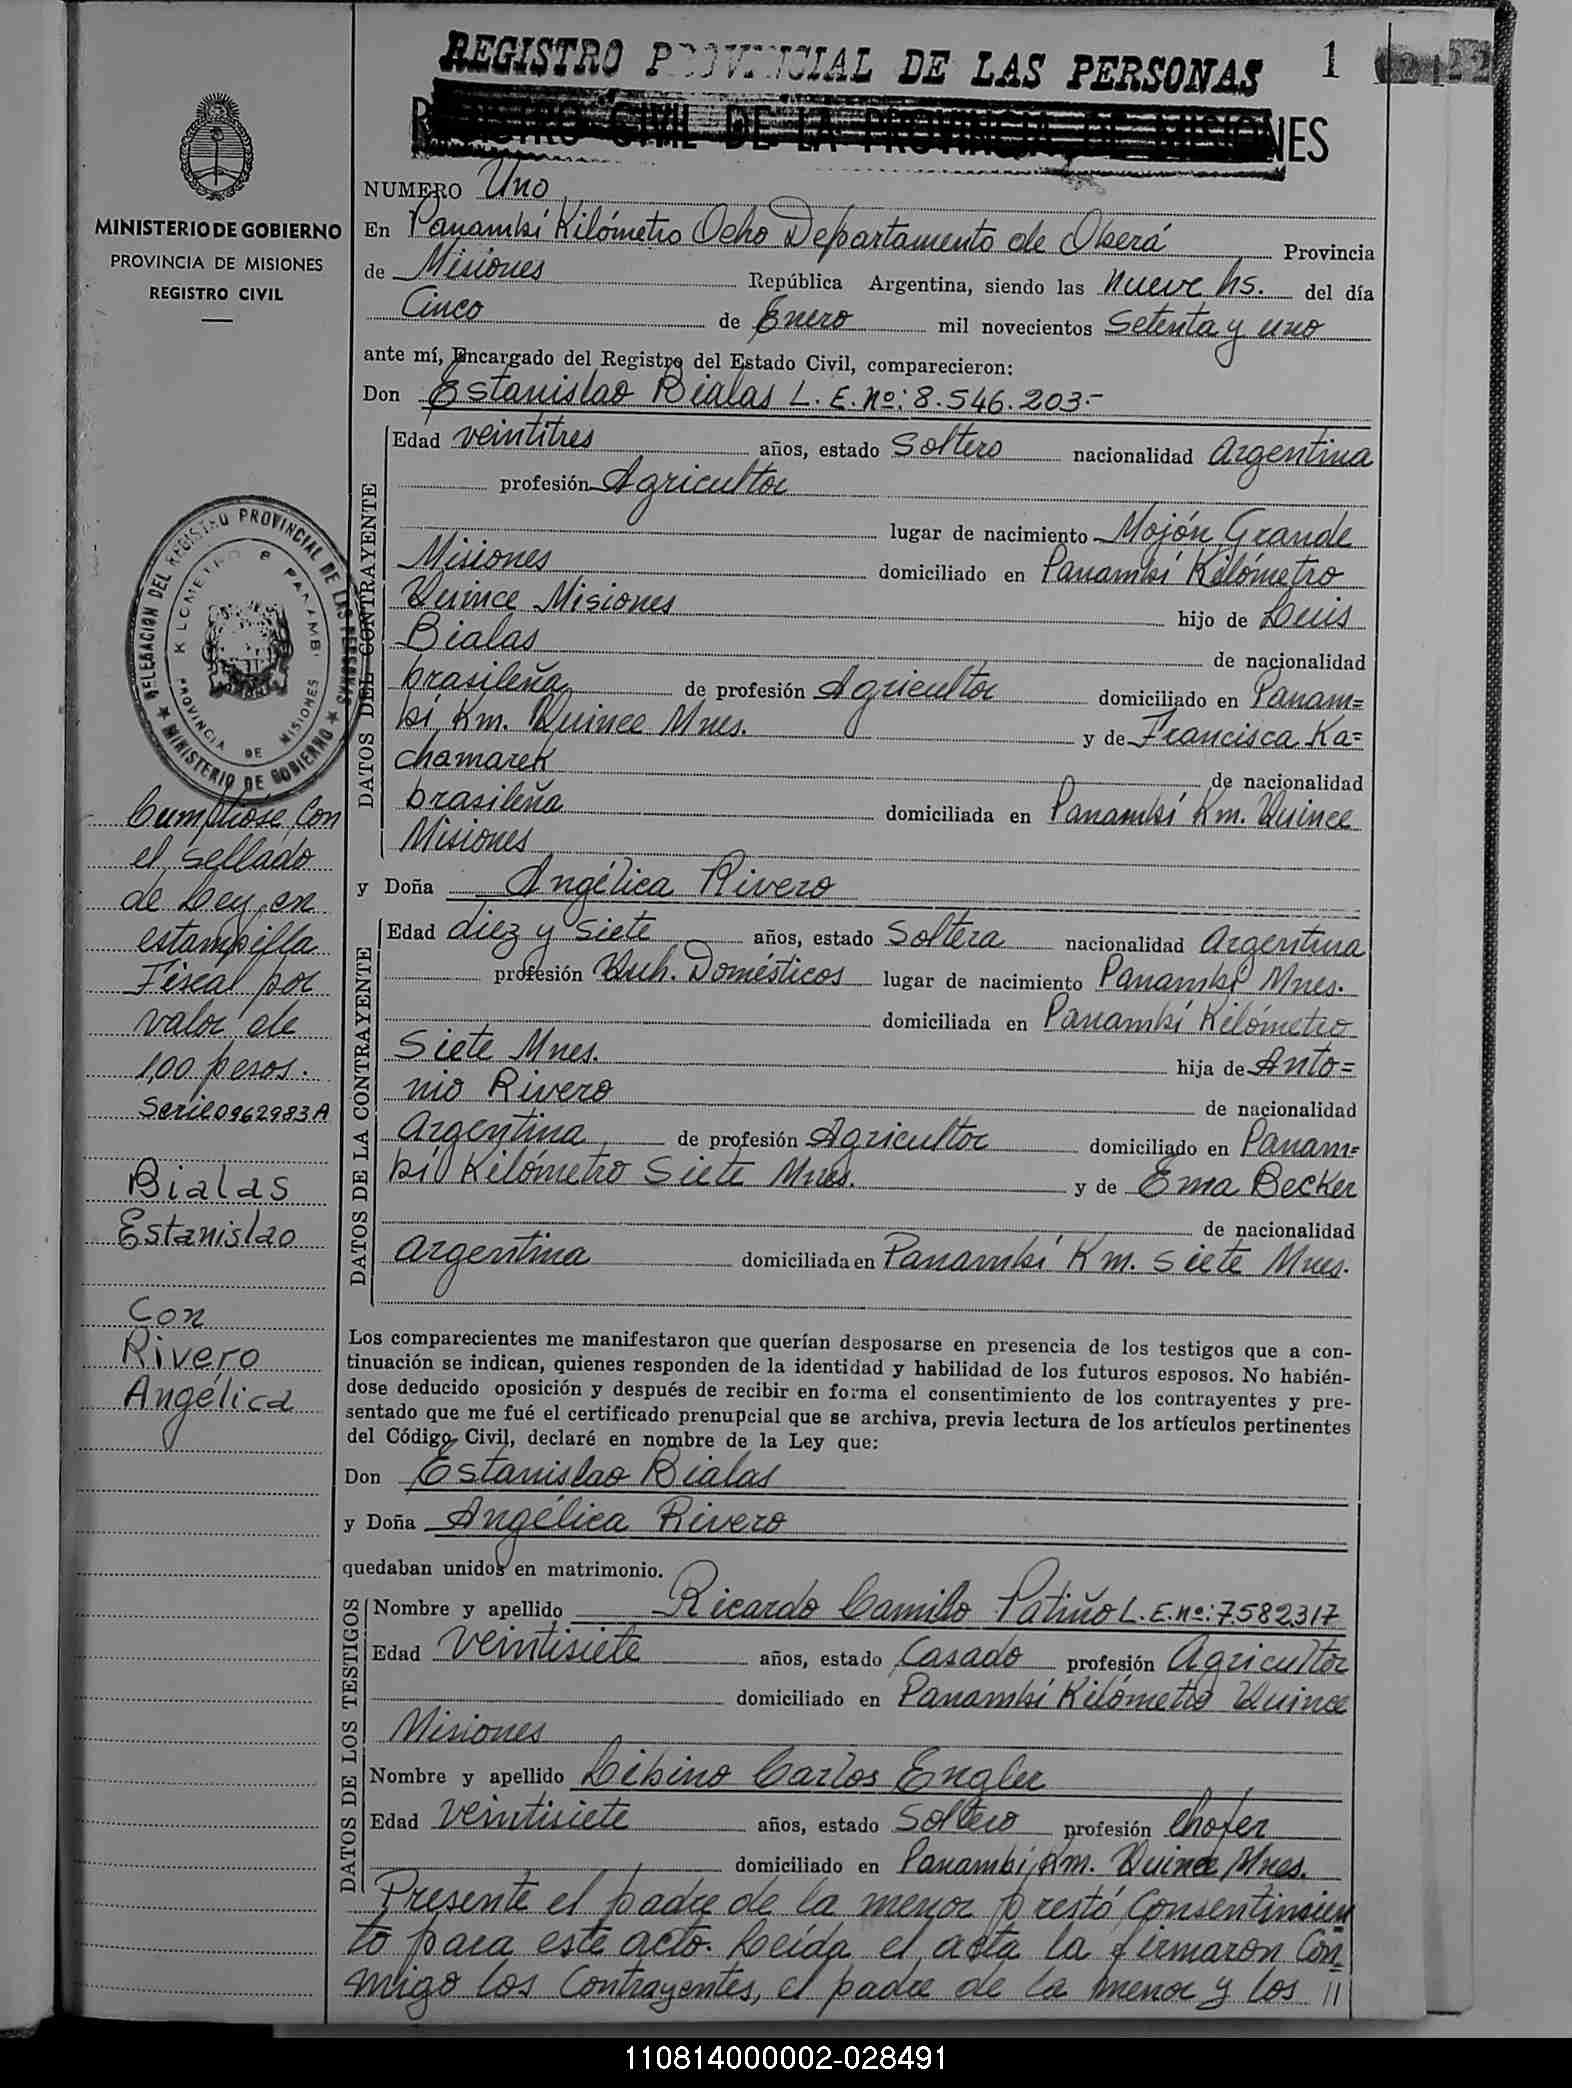 REGISTRO PROVINCIAL DE LAS PERSONAS 1
REGISTRO CIVIL DE LA PROVINCIA DE MISIONES
MINISTERIO DE GOBIERNO
PROVINCIA DE MISIONES
REGISTRO CIVIL
DELEGACION DEL REGISTRO PROVINCIAL DE LAS PERSONAS
MINISTERIO DE GOBIERNO
KILOMETRO 8 PANAMBI
PROVINCIA DE MISIONES
Cumpliose con
el sellado
de Ley en
estampilla
Fiscal por
valor de
1,00 pesos.
Serie 0962983A
Bialas
Estanislao
Con
Rivero
Angélica
NUMERO Uno
En Panambí Kilómetro Ocho Departamento de Oberá Provincia
de Misiones República Argentina, siendo las nueve hs. del día
Cinco de Enero mil novecientos Setenta y uno
ante mí, Encargado del Registro del Estado Civil, comparecieron:
Don Estanislao Bialas L. E. Nº: 8.546.203.-
DATOS DEL CONTRAYENTE
Edad veintitres años, estado Soltero nacionalidad Argentina
profesión Agricultor
lugar de nacimiento Mojón Grande
Misiones domiciliado en Panambí Kilómetro
Quince Misiones hijo de Luis
Bialas de nacionalidad
brasileña de profesión Agricultor domiciliado en Panam=
bí Km. Quince Mnes. y de Francisca Ka=
chamarek de nacionalidad
brasileña domiciliada en Panambí Km. Quince
Misiones
y Doña Angélica Rivero
DATOS DE LA CONTRAYENTE
Edad diez y siete años, estado Soltera nacionalidad Argentina
profesión Queh. Domésticos lugar de nacimiento Panambí Mnes.
domiciliada en Panambí Kilómetro
Siete Mnes. hija de Anto=
nio Rivero de nacionalidad
Argentina de profesión Agricultor domiciliado en Panam=
bí Kilómetro Siete Mnes. y de Ema Becker
de nacionalidad
argentina domiciliada en Panambí Km. Siete Mnes.
Los comparecientes me manifestaron que querían desposarse en presencia de los testigos que a con-
tinuación se indican, quienes responden de la identidad y habilidad de los futuros esposos. No habién-
dose deducido oposición y después de recibir en forma el consentimiento de los contrayentes y pre-
sentado que me fué el certificado prenupcial que se archiva, previa lectura de los artículos pertinentes
del Código Civil, declaré en nombre de la Ley que:
Don Estanislao Bialas
y Doña Angélica Rivero
quedaban unidos en matrimonio.
DATOS DE LOS TESTIGOS
Nombre y apellido Ricardo Camilo Patiño L. E. nº: 7.582.317
Edad veintisiete años, estado Casado profesión Agricultor
domiciliado en Panambí Kilómetro Quince
Misiones
Nombre y apellido Libino Carlos Engler
Edad veintisiete años, estado Soltero profesión Chofer
domiciliado en Panambí Km. Quince Mnes.
Presente el padre de la menor prestó Consentimien
to para este acto. Leída el acta la firmaron Con=
migo los Contrayentes, el padre de la menor y los //
110814000002-028491